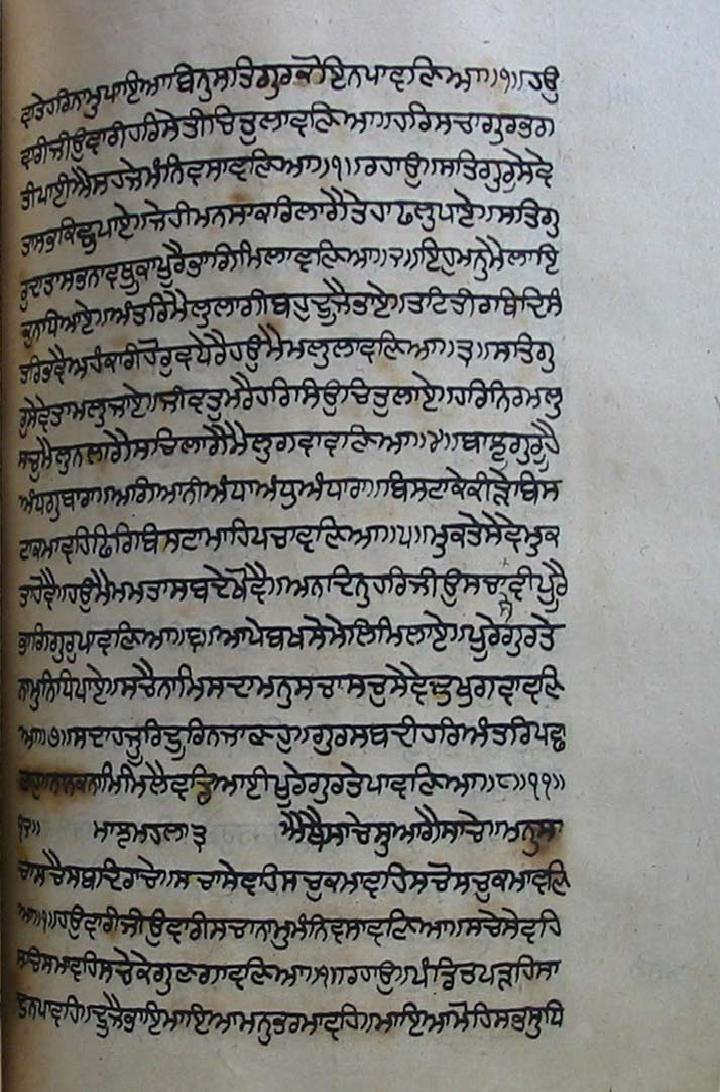 ਦਾਤੇਹਰਿਨਾਮੁਪਾਇਆਬਿਨੁਸਤਿਗੁਰਕੋਇਨਪਾਵਣਿਆ॥੧॥ਹਉ
ਵਾਰੀਜੀਉਵਾਰੀਹਰਿਸੇਤੀਚਿਤੁਲਾਵਣਿਆ॥ਹਰਿਸਚਾਗੁਰਭਗ
ਤੀਪਾਈਐਸਹਜੇਮੰਨਿਵਸਾਵਣਿਆ॥੧॥ਰਹਾਉ॥ਸਤਿਗੁਰੁਸੇਵੇ
ਤਾਸਭਕਿਛੁਪਾਏ॥ਜੇਹੀਮਨਸਾਕਰਿਲਾਗੈਤੇਹਾਫਲੁਪਾਏ॥ਸਤਿਗੁ
ਰੁਦਾਤਾਸਭਨਾਵਥੁਕਾਪੂਰੈਭਾਗਿਮਿਲਾਵਣਿਆ॥੨॥ਇਹੁਮਨੁਮੈਲਾਇ
ਕੁਨਧਿਆਏ॥ਅੰਤਰਿਮੈਲੁਲਾਗੀਬਹੁਦੂਜੈਭਾਏ॥ਤਟਿਤੀਰਥਿਦਿਸੰ
ਤਰਿਭਵੈਅਹੰਕਾਰੀਹੋਰੁਵਧੇਰੈਹਉਮੈਮਲੁਲਾਵਣਿਆ॥੩॥ਸਤਿਗੁ
ਰੁਸੇਵੇਤਾਮਲੁਜਾਏ॥ਜੀਵਤੁਮਰੈਹਰਿਸਿਉਚਿਤੁਲਾਏ॥ਹਰਿਨਿਰਮਲੁ
ਸਚੁਮੈਲੁਨਲਾਗੈਸਚਿਲਾਗੈਮੈਲੁਗਵਾਵਣਿਆ॥੪॥ਬਾਝੁਗੁਰੂਹੈ
ਅੰਧਗੁਬਾਰਾ॥ਅਗਿਆਨੀਅੰਧਾਅੰਧੁਅੰਧਾਰਾ॥ਬਿਸਟਾਕੇਕੀੜੇਬਿਸ
ਟਾਕਮਾਵਹਿਫਿਰਿਬਿਸਟਾਮਾਹਿਪਚਾਵਣਿਆ॥੫॥ਮੁਕਤੇਸੇਵੇਮੁਕ
ਤਾਹੋਵੈ॥ਹਉਮੈਮਮਤਾਸਬਦੇਖੋਵੈ॥ਅਨਦਿਨੁਹਰਿਜੀਉਸਚਾਸੇਵੀਪੂਰੈ
ਭਾਗਿਗੁਰੁਪਾਵਣਿਆ॥੬॥ਆਪੇਬਖਸੇਮੇਲਿਮਿਲਾਏ॥ਪੂਰੇਗੁਰਤੇ
ਨਾਮੁਨਿਧਿਪਾਏ॥ਸਚੈਨਾਮਿਸਦਾਮਨੁਸਚਾਸਚੁਸੇਵੇਦੁਖੁਗਵਾਵਣਿ
ਆ॥੭॥ਸਦਾਹਜੂਰਿਦੂਰਿਨਜਾਣਹੁ॥ਗੁਰਸਬਦੀਹਰਿਅੰਤਰਿਪਛਾ
ਣਹੁ॥ਨਾਨਕਨਾਮਿਮਿਲੈਵਡਿਆਈਪੂਰੇਗੁਰਤੇਪਾਵਣਿਆ॥੮॥੧੧॥
੧੨॥ ਮਾਝਮਹਲਾ੩ ਐਥੈਸਾਚੇਸੁਆਗੈਸਾਚੇ॥ਮਨੁਸਾ
ਚਾਸਚੈਸਬਦਿਰਾਚੇ॥ਸਚਾਸੇਵਹਿਸਚੁਕਮਾਵਹਿਸਚੋਸਚੁਕਮਾਵਣਿ
ਆ॥੧॥ਹਉਵਾਰੀਜੀਉਵਾਰੀਸਚਾਨਾਮੁਮੰਨਿਵਸਾਵਣਿਆ॥ਸਚੇਸੇਵਹਿ
ਸਚਿਸਮਾਵਹਿਸਚੇਕੇਗੁਣਗਾਵਣਿਆ॥੧॥ਰਹਾਉ॥ਪੰਡਿਤਪੜਹਿਸਾ
ਦੁਨਪਾਵਹਿ॥ਦੂਜੈਭਾਇਮਾਇਆਮਨੁਭਰਮਾਵਹਿ॥ਮਾਇਆਮੋਹਿਸਭਸੁਧਿ